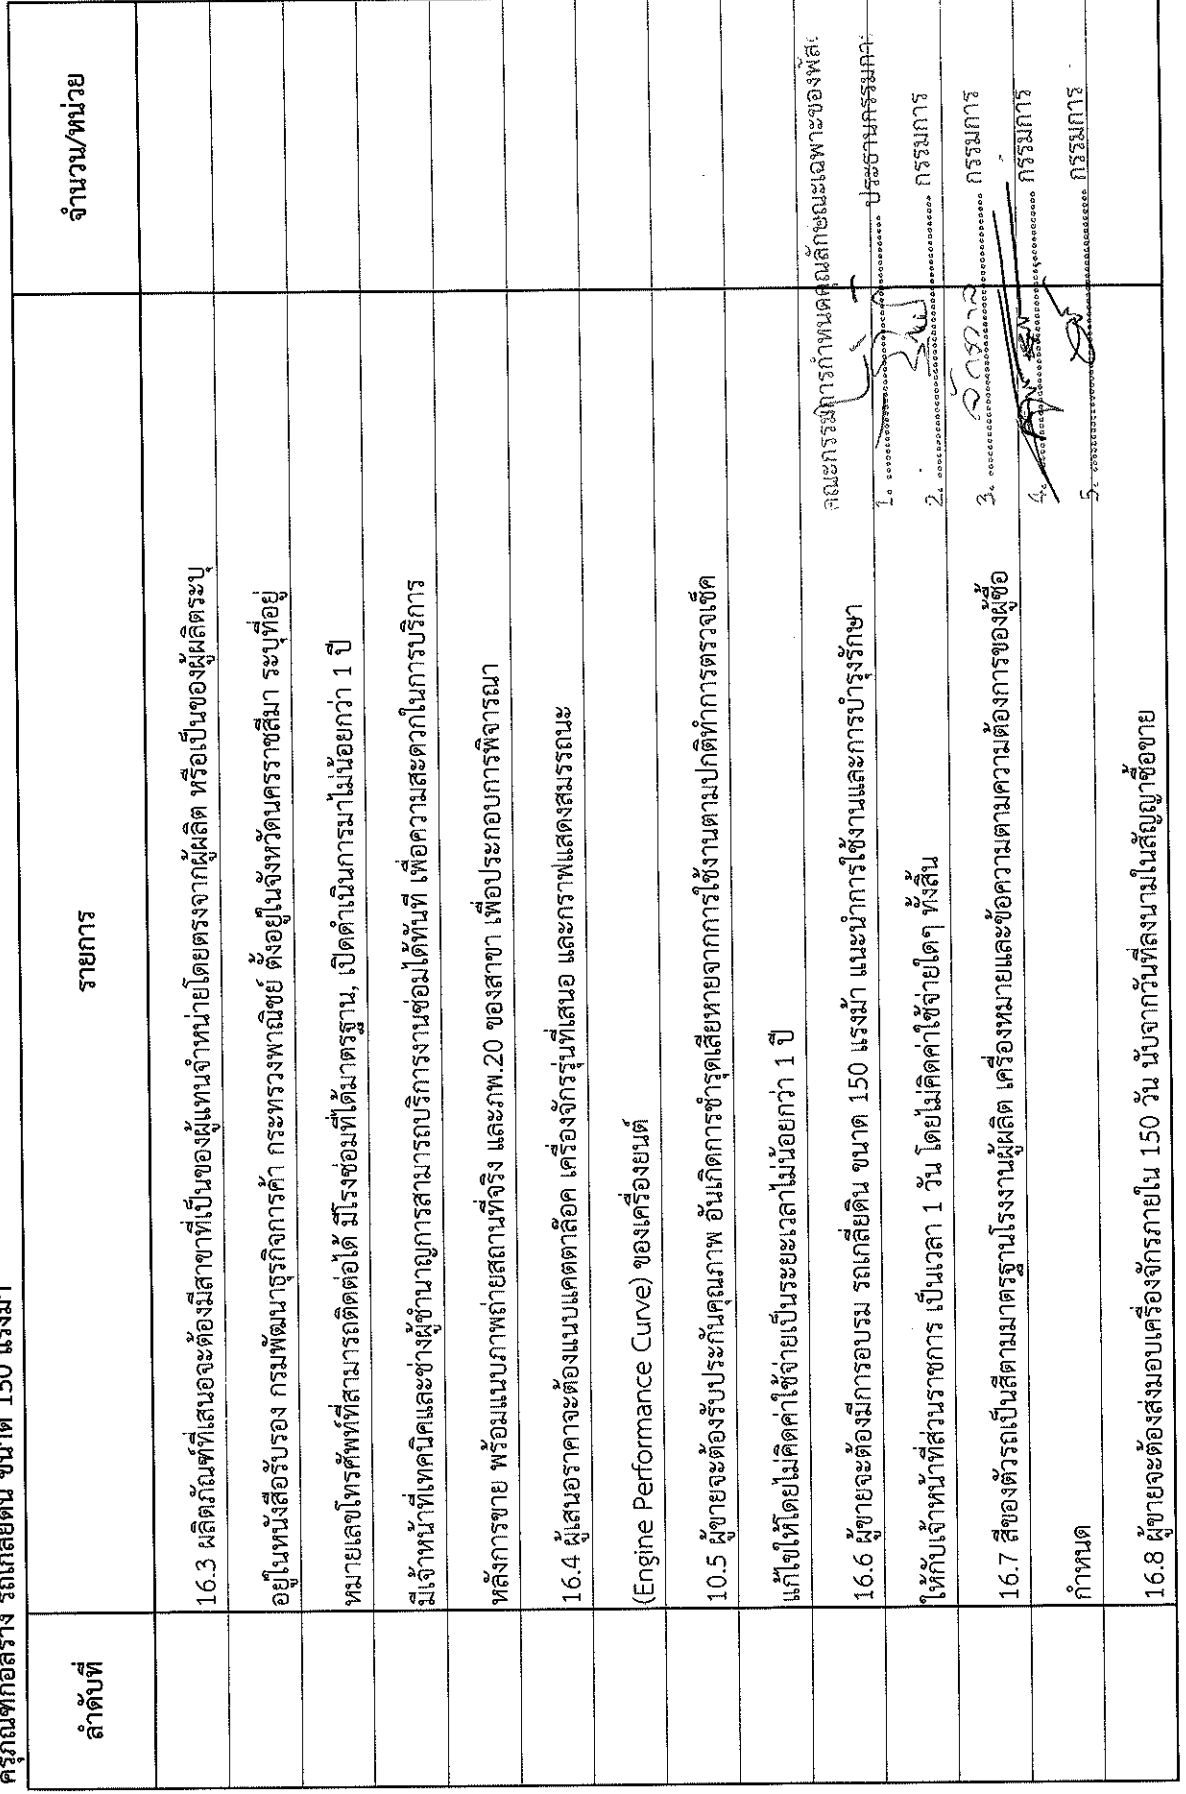 ครุภัณฑ์ก่อสร้าง รถเกลี่ยดิน ขนาด 150 แรงม้า
ลำดับที่ รายการ จำนวน/หน่วย
16.3 ผลิตภัณฑ์ที่เสนอจะต้องมีสาขาที่เป็นของผู้แทนจำหน่ายโดยตรงจากผู้ผลิต หรือเป็นของผู้ผลิตระบุ
อยู่ในหนังสือรับรอง กรมพัฒนาธุรกิจการค้า กระทรวงพาณิชย์ ตั้งอยู่ในจังหวัดนครราชสีมา ระบุที่อยู่
หมายเลขโทรศัพท์ที่สามารถติดต่อได้ มีโรงซ่อมที่ได้มาตรฐาน, เปิดดำเนินการมาไม่น้อยกว่า 1 ปี
มีเจ้าหน้าที่เทคนิคและช่างผู้ชำนาญการสามารถบริการงานซ่อมได้ทันที เพื่อความสะดวกในการบริการ
หลังการขาย พร้อมแนบภาพถ่ายสถานที่จริง และภพ.20 ของสาขา เพื่อประกอบการพิจารณา
16.4 ผู้เสนอราคาจะต้องแนบแคตตาล้อค เครื่องจักรรุ่นที่เสนอ และกราฟแสดงสมรรถนะ
(Engine Performance Curve) ของเครื่องยนต์
10.5 ผู้ขายจะต้องรับประกันคุณภาพ อันเกิดการชำรุดเสียหายจากการใช้งานตามปกติทำการตรวจเช็ค
แก้ไขให้โดยไม่คิดค่าใช้จ่ายเป็นระยะเวลาไม่น้อยกว่า 1 ปี
16.6 ผู้ขายจะต้องมีการอบรม รถเกลี่ยดิน ขนาด 150 แรงม้า แนะนำการใช้งานและการบำรุงรักษา
ให้กับเจ้าหน้าที่ส่วนราชการ เป็นเวลา 1 วัน โดยไม่คิดค่าใช้จ่ายใดๆ ทั้งสิ้น
16.7 สีของตัวรถเป็นสีตามมาตรฐานโรงงานผู้ผลิต เครื่องหมายและข้อความตามความต้องการของผู้ซื้อ
กำหนด
16.8 ผู้ขายจะต้องส่งมอบเครื่องจักรภายใน 150 วัน นับจากวันที่ลงนามในสัญญาซื้อขาย
คณะกรรมการกำหนดคุณลักษณะเฉพาะของพัสดุ
1. ........ ประธานกรรมการ
2. ........ กรรมการ
3. ........ กรรมการ
4. ........ กรรมการ
5. ........ กรรมการ